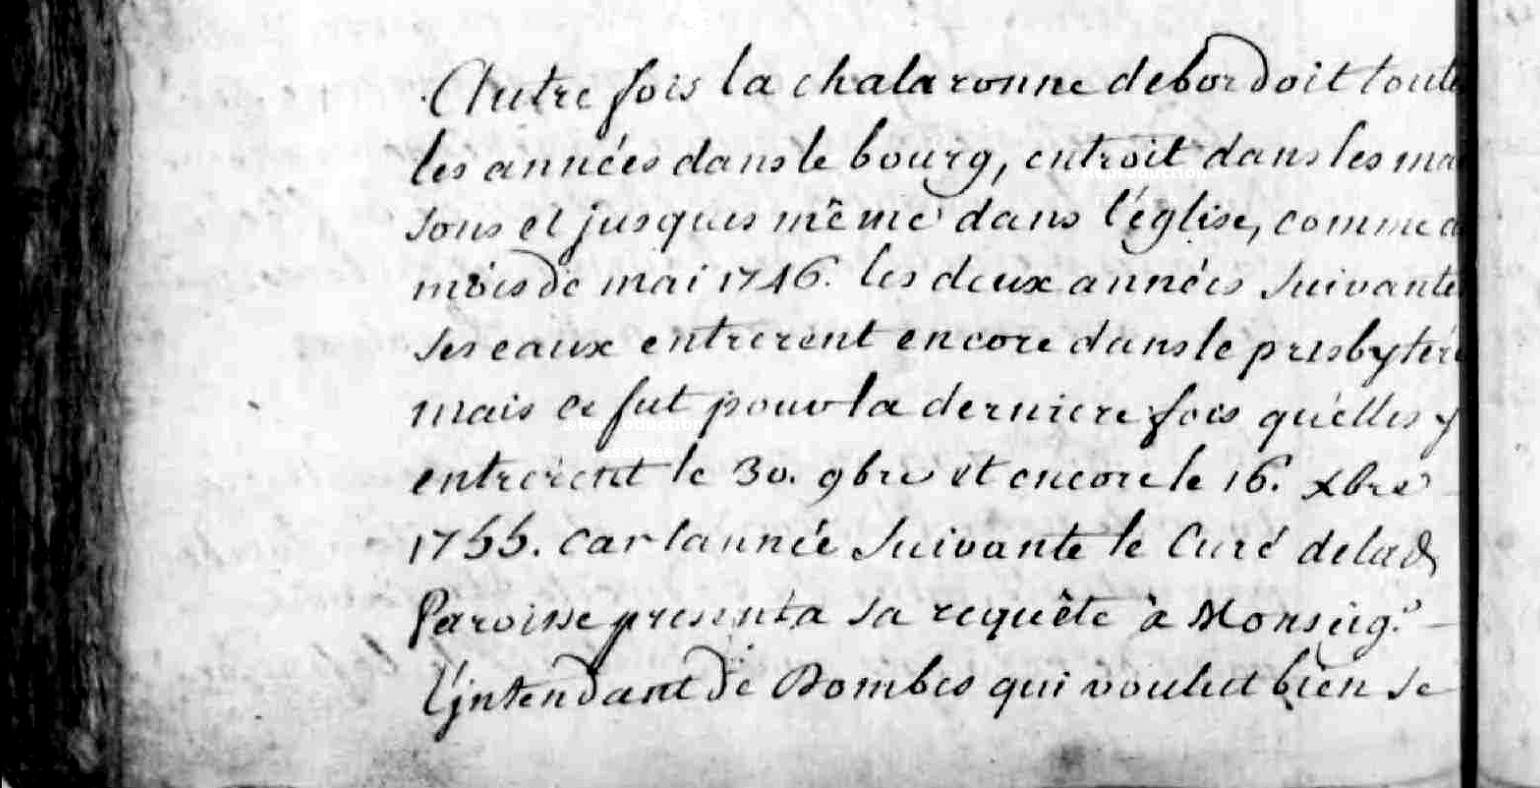 Autre fois la chalaronne debordoit toute
les années dans le bourg, entroit dans les mai
sons et jusques même dans l'église, comme a
mois de mai 1746. les deux années suivante
ses eaux entrerent encore dans le presbytere
mais ce fut pour la derniere fois qu'elles y
entrerent le 30. 9bre et encore le 16. xbre
1755. car l'année suivante le Curé de lad
Paroisse presenta sa requête à Monseigr
l'jntendant de Dombes qui voulut bien se